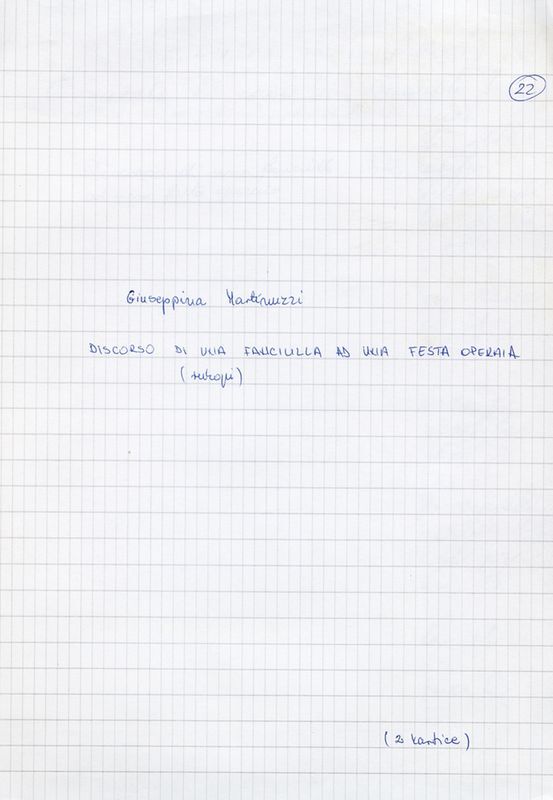 22
Giuseppina Martinuzzi
DISCORSO DI UNA FANCIULLA AD UNA FESTA OPERAIA
(rukopis)
(2 kartice)